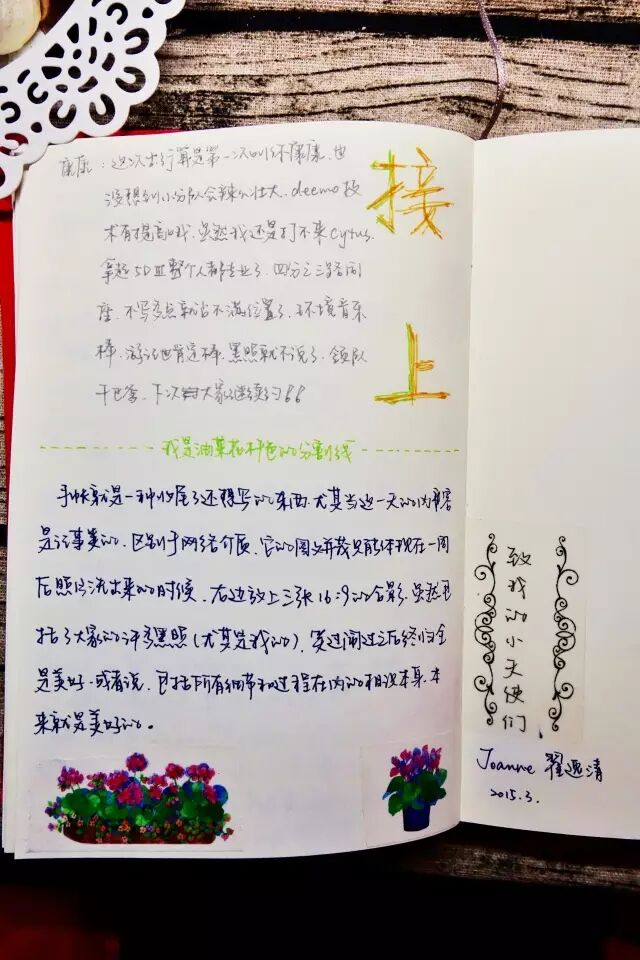 康康：这次出行算是第一次叫你康康，也
没想到小分队会辣么壮大，deemo技
术有提高哦，虽然我还是打不来cytus.
拿起5DIII整个人都专业了，四分之三落在同
座，不写多点就占不满位置了，环境音乐
棒，游记也肯定棒，黑照就不说了，领队
干巴爹，下次大家继续约68
接
上
我是油菜花科色的分割线
手帐就是一种收尾了还想写的东西，尤其当这一天的内容
是这事美的，区别于网络介质，它的图文并茂只能体现在一周
后照片洗出来的时候，右边放上三张16:9的合影，虽然包
括了大家的许多黑照（尤其是我的），笑过闹过之后终归全
是美好，或者说，包括所有细节和过程在内的相设本身，本
来就是美好的。
致我的小天使们
Joanne 翟逸清
2015.3.